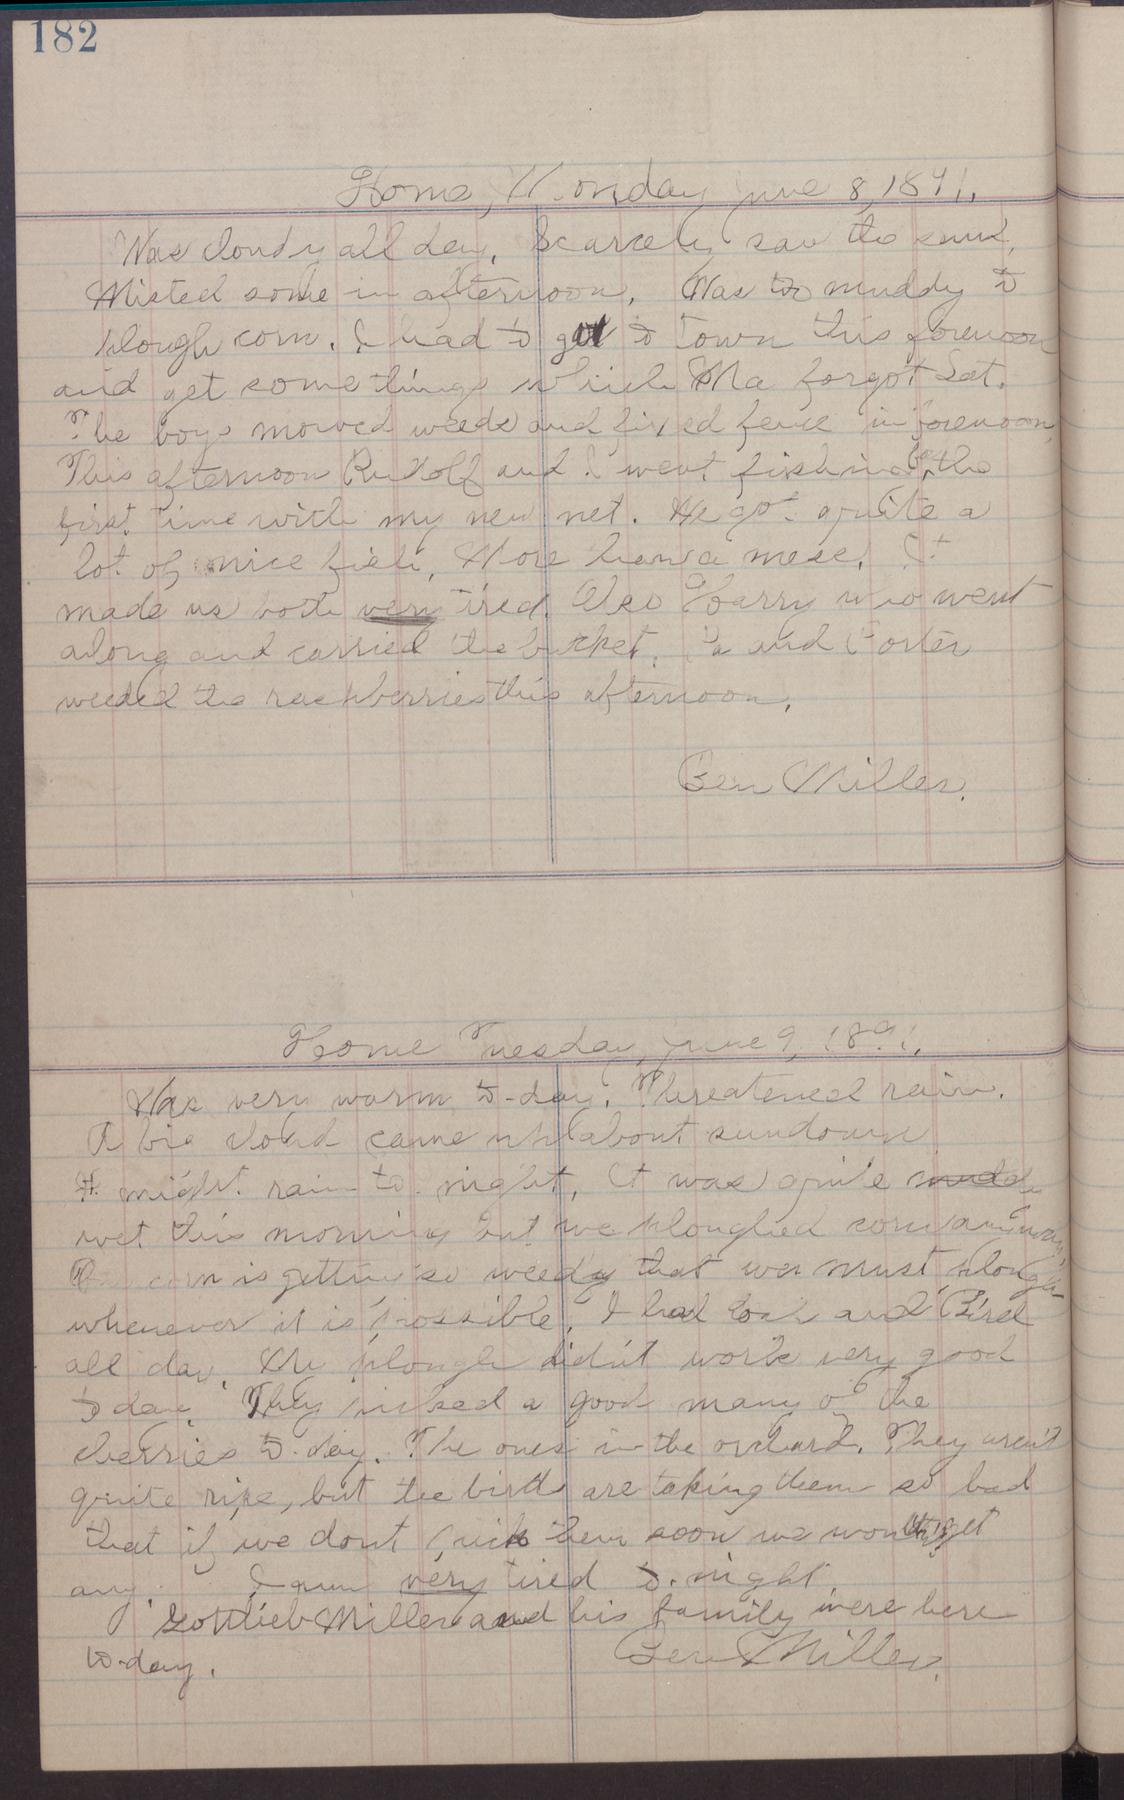 182
Home, Monday June 8, 1891.
Was cloudy all day. Scarcely saw the sun.
Misted some in afternoon. Was too muddy to
plough corn. I had to go to town this forenoon
and get some things which Ma forgot Sat.
The boys mowed weeds and fixed fence in forenoon.
This afternoon Rudolf and I went fishing for the
first time with my new net. We got quite a
lot of nice fish. More than a mess. It
made us both very tired. Also Harry who went
along and carried the bucket. Pa and Porter
weeded the raspberries this afternoon.
Ben Miller.
Home Tuesday, June 9, 1891.
Was very warm to-day. Threatened rain.
A big cloud came up about sundown
It might rain to-night. It was quite muddy
wet this morning but we ploughed corn anyway.
The corn is getting so weedy that we must plough
whenever it is possible. I had and Bird
all day. My plough didn't work very good
to day. They picked a good many of the
cherries to-day. The ones in the orchard. They aren't
quite ripe, but the birds are taking them so bad
that if we dont pick them soon we wont get
any. I am very tired to-night.
Gottlieb Miller and his family were here
to-day.
Ben Miller.